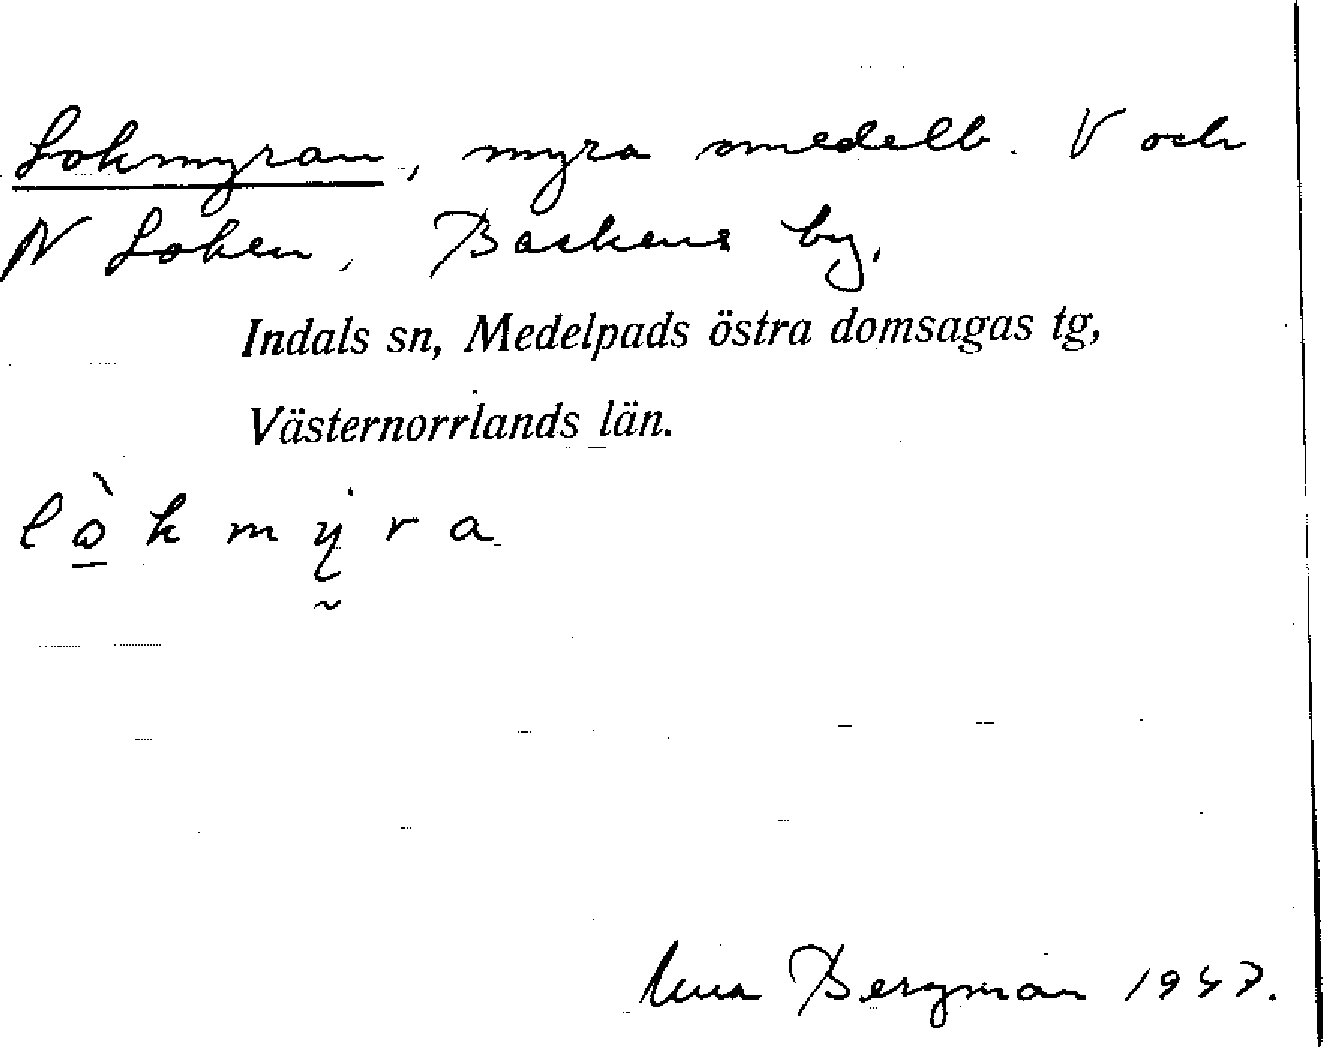 Lokmyran, myra omedelb. V och
N Loken, Backens by.
Indals sn, Medelpads östra domsagas tg,
Västernorrlands län.
lòkmyra
Bergman 1947.